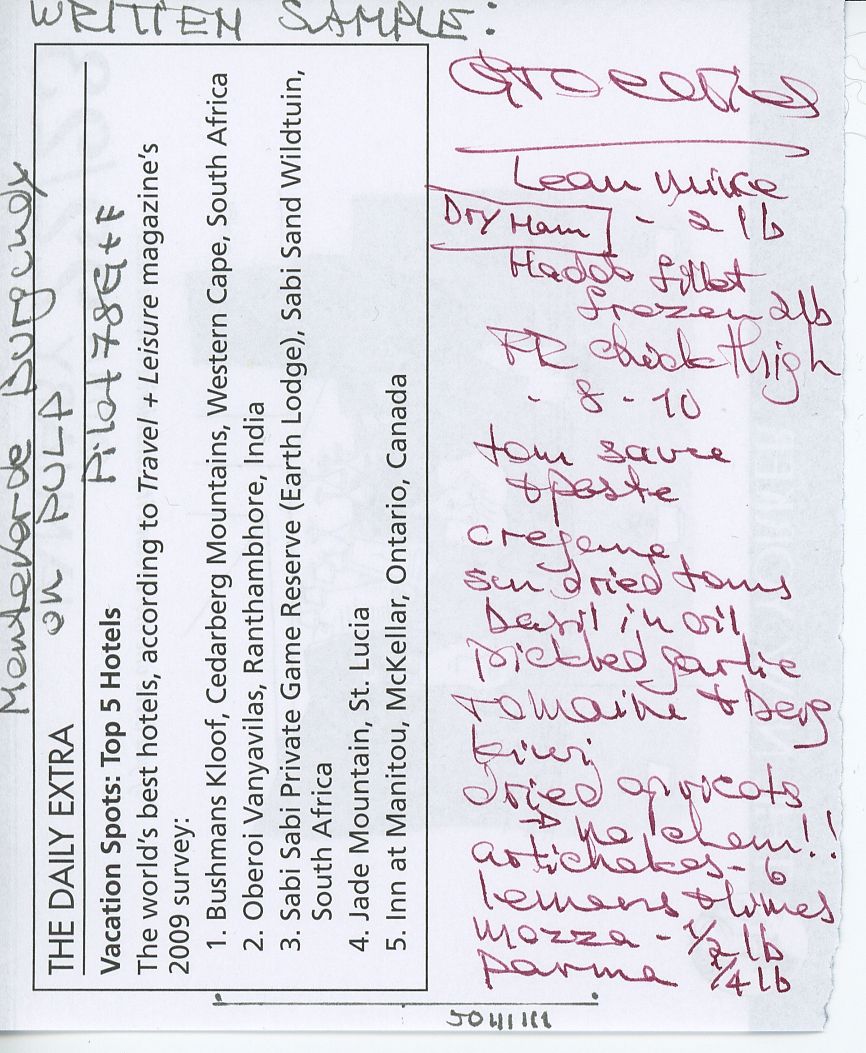 WRITTEN SAMPLE:
Monteverde Burgundy
on PULP
Pilot 78G+F
THE DAILY EXTRA
Vacation Spots: Top 5 Hotels
The world's best hotels, according to Travel + Leisure magazine's
2009 survey:
1. Bushmans Kloof, Cedarberg Mountains, Western Cape, South Africa
2. Oberoi Vanyavilas, Ranthambhore, India
3. Sabi Sabi Private Game Reserve (Earth Lodge), Sabi Sand Wildtuin,
South Africa
4. Jade Mountain, St. Lucia
5. Inn at Manitou, McKellar, Ontario, Canada
Groceries
Lean mince
Dry Ham - 2 lb
Haddo fillet
frozen 2lb
FR chick thigh
- 8 - 10
tom sauce
+ paste
sun dried toms
basil in oil
pickled garlic
romaine + berg
kiwi
dried apricots
→ no chem!!
artichokes - 6
lemons + limes
mozza - 1/2 lb
parma 1/4 lb